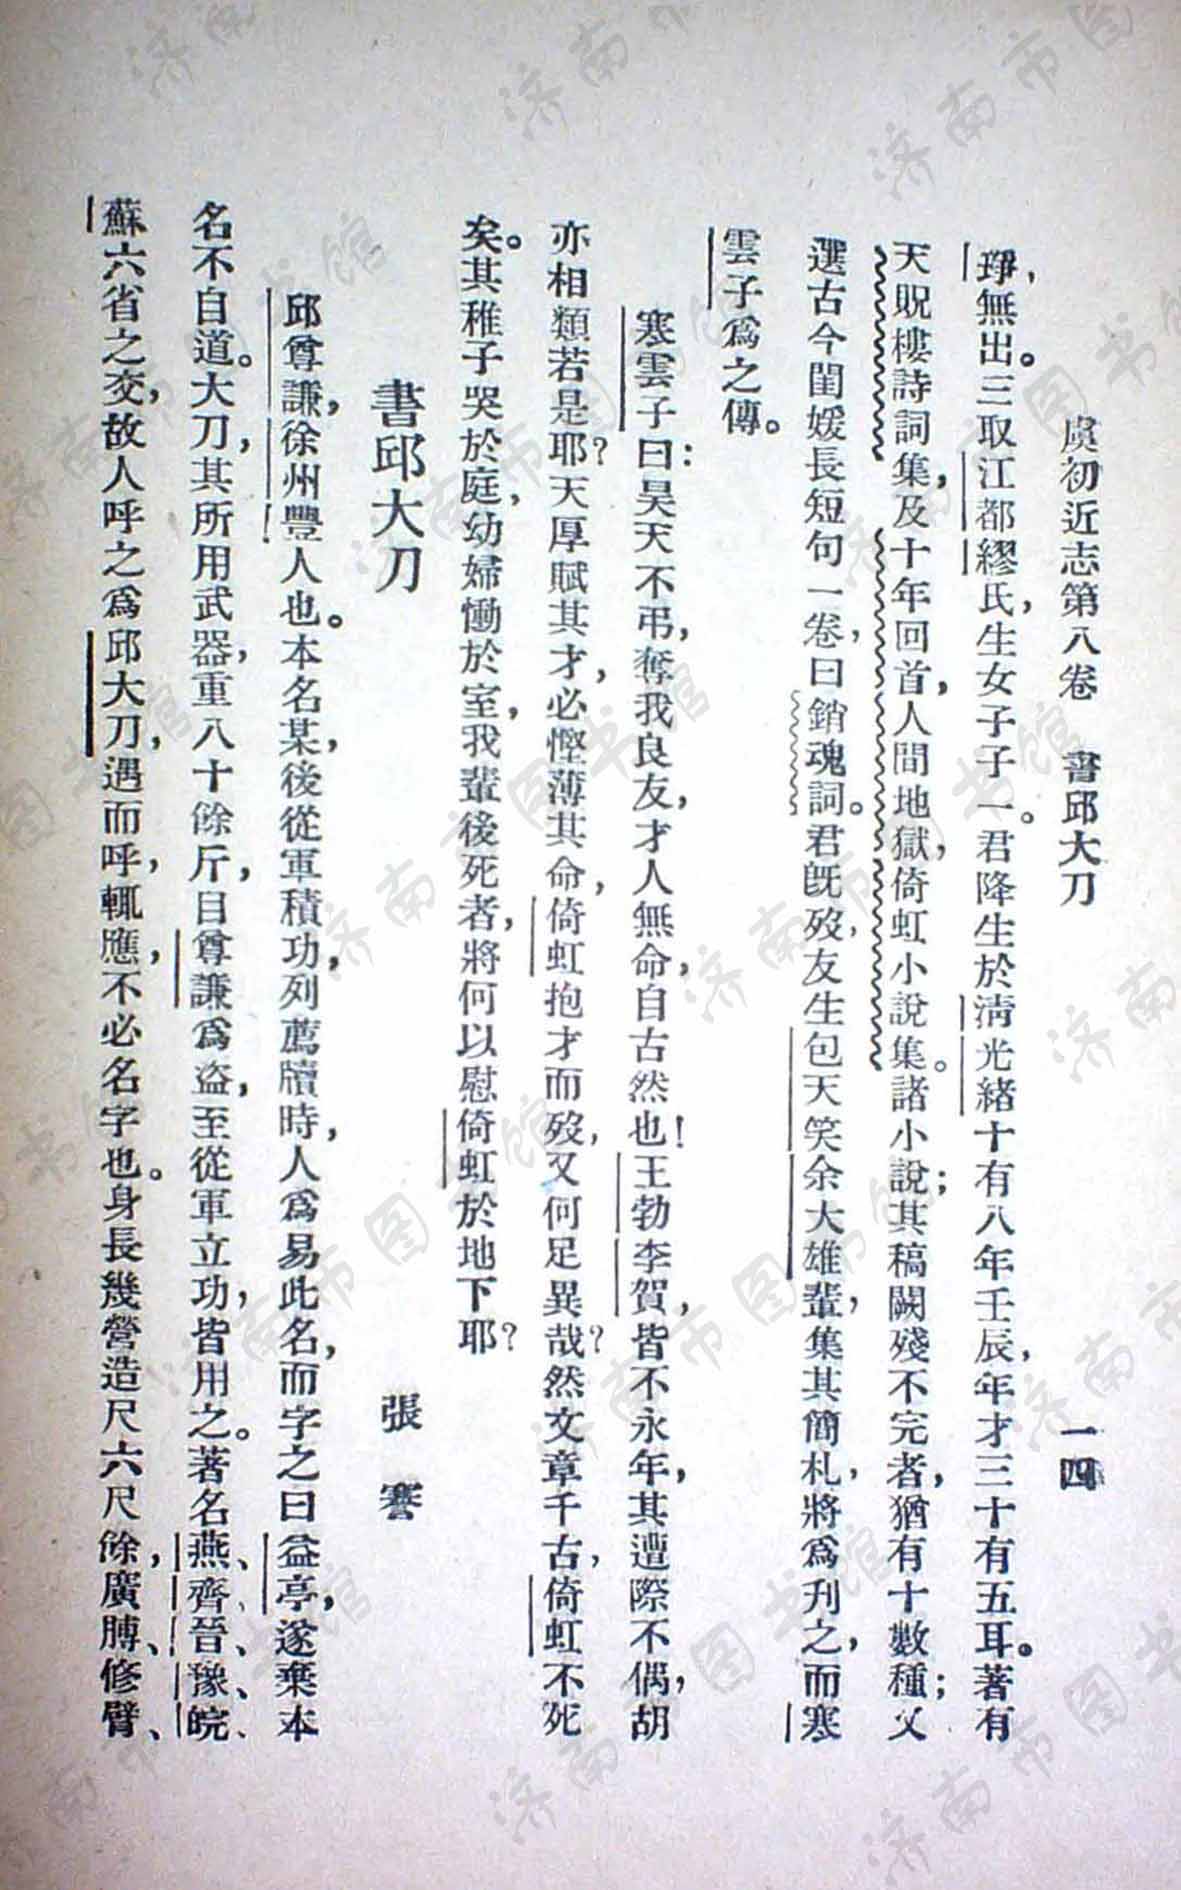 虞初近志第八卷　書邱大刀　一四
琤，無出。三取江都繆氏，生女子子一。君降生於淸光緖十有八年壬辰，年才三十有五耳。著有
天貺樓詩詞集，及十年回首，人間地獄，倚虹小說集。諸小說；其稿闕殘不完者，猶有十數種；又
選古今閨媛長短句一卷，曰銷魂詞。君旣歿，友生包天笑余大雄輩，集其簡札，將爲刋之，而寒
雲子爲之傳。
寒雲子曰：昊天不弔，奪我良友，才人無命，自古然也！王勃李賀，皆不永年，其遭際不偶，胡
亦相類若是耶？天厚賦其才，必慳薄其命，倚虹抱才而歿，又何足異哉？然文章千古，倚虹不死
矣。其稚子哭於庭，幼婦慟於室，我輩後死者，將何以慰倚虹於地下耶？
書邱大刀　張謇
邱尊謙，徐州豐人也。本名某，後從軍積功，列薦牘時，人爲易此名，而字之曰益亭，遂棄本
名不自道。大刀，其所用武器，重八十餘斤，自尊謙爲盜，至從軍立功，皆用之。著名燕、齊、晉、豫、皖、
蘇六省之交，故人呼之爲邱大刀，遇而呼，輒應，不必名字也。身長幾營造尺六尺餘，廣膊、修臂、
济南市图书馆